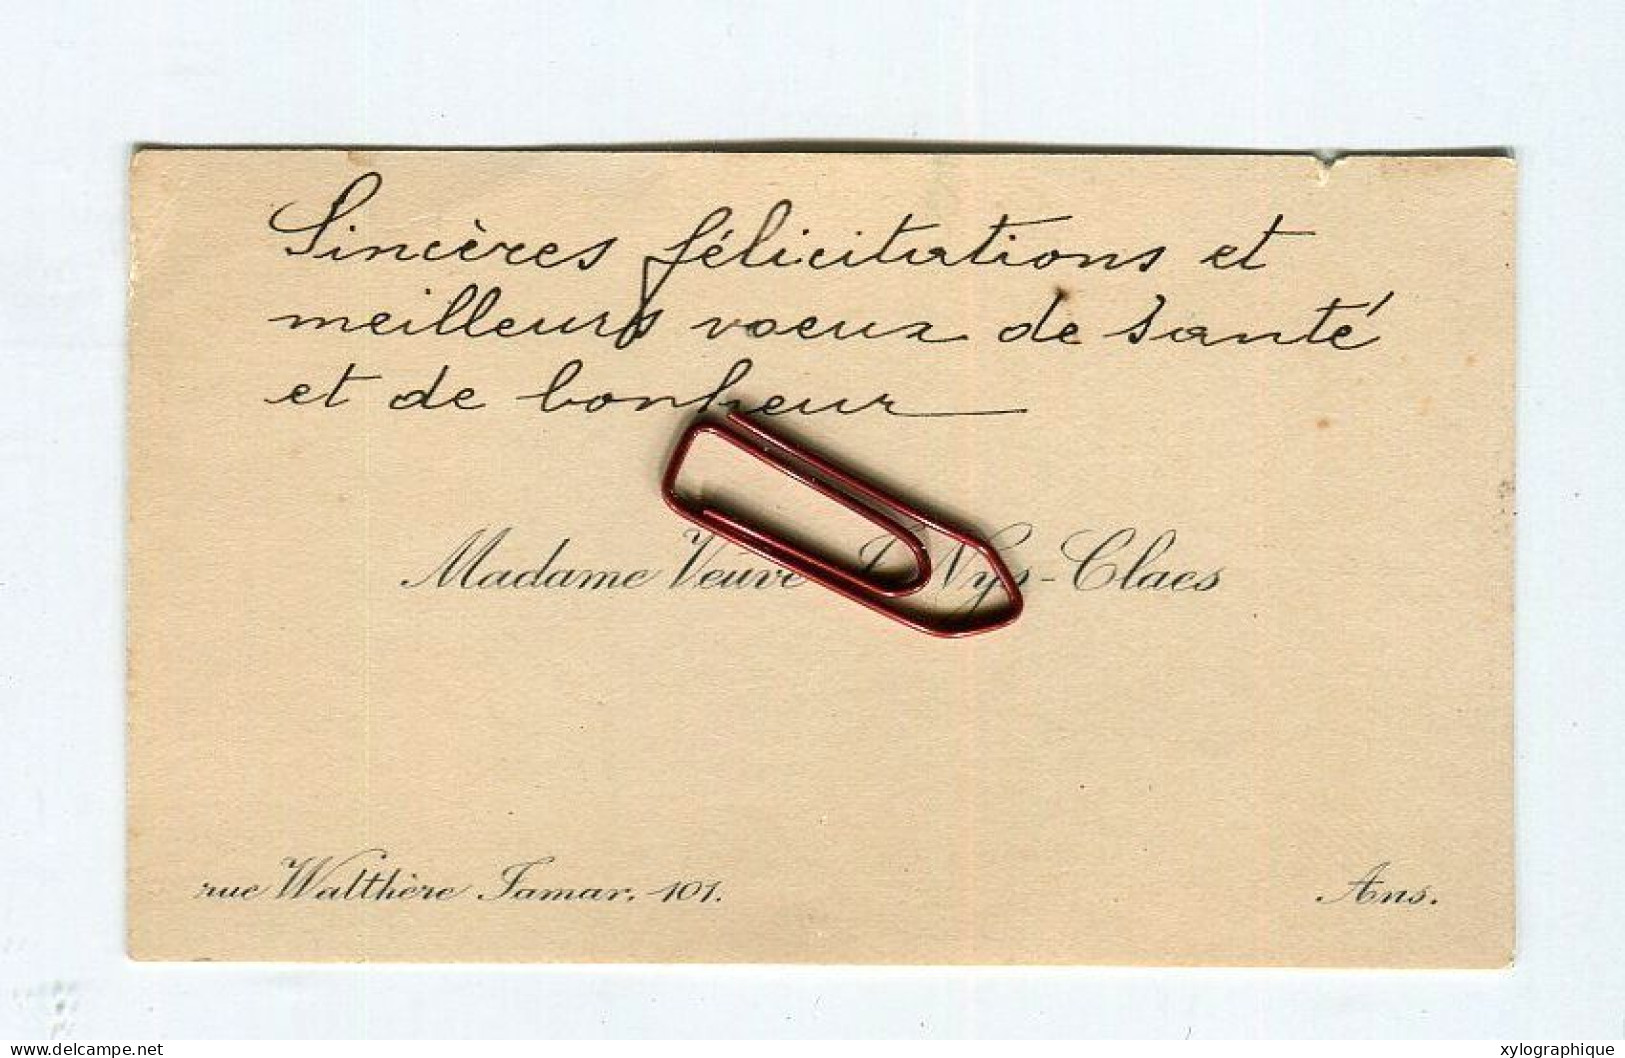 Sincères félicitations et
meilleurs voeux de santé
et de bonheur
Madame Veuve Nys-Claes
rue Walthère Jamar. 101.
Ans.
www.delcampe.net
xylographique